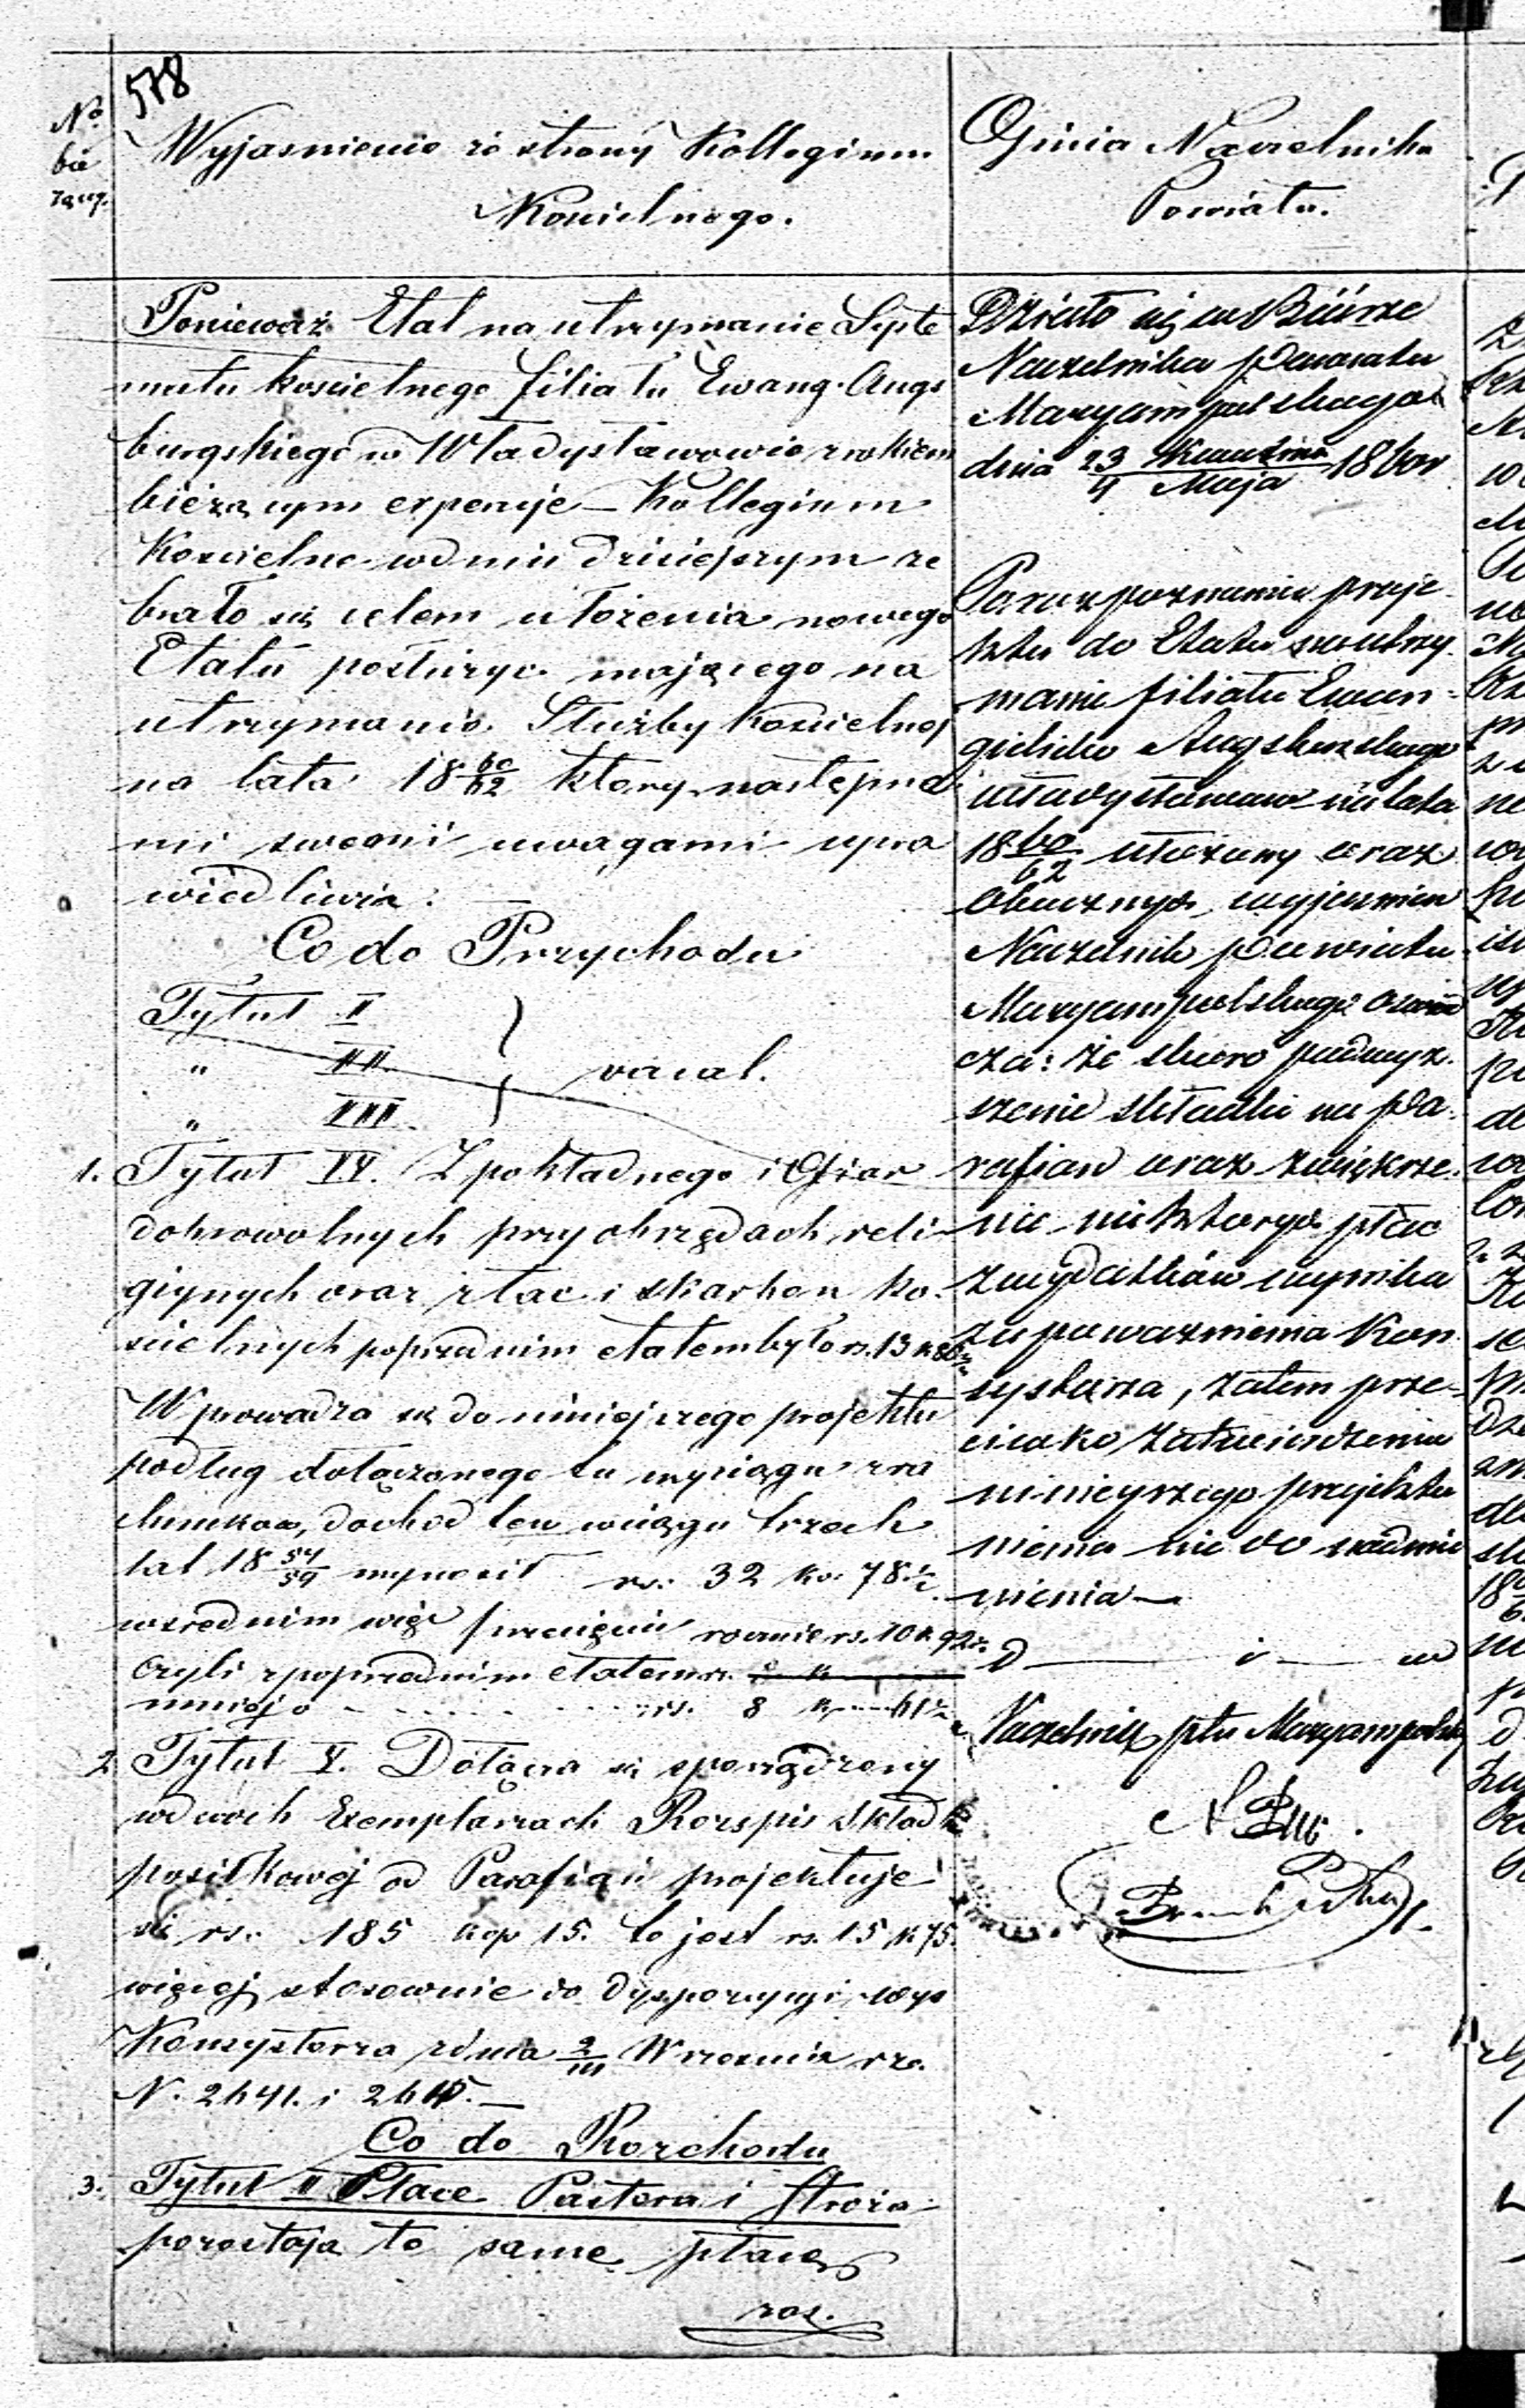 578
No
bie
żący.
Wyjasnienie ze strony Kollegium
Koscielnego.
Opinia Naczelnika
Powiatu.
Ponieważ Etat na utrzymanie Syste
matu koscielnego filiatu Ewang. Augs
burgskiego w Władysławowie z rokiem
bieżącym experuje – Kollegium
Koscielne w dniu dzisiejszym ze
brało się celem ułożenia nowego
Etatu posłużyć mającego na
utrzymanie Służby Koscielnej
na lata 18 60/62 który następne
mi swemi uwagami uspra
wiedliwia:
Co do Przychodu
Tytuł II
" III
" III
vacat.
1. Tytuł IV. Z pokładnego i Ofiar
dobrowolnych przy obrzędach reli
gijnych oraz z tac i skarbon ko-
scielnych poprzednim etatem było rs. 13 k.
Wprowadza się do niniejszego projektu
podług dołączonego tu wyciągu z ra
chunków, dochod ten w ciągu trzech
lat 18 57/59 wynosił rs. 32 ko. 78 1/2
w srednim więc przecięciu rocznie rs. 10 k. 92
czyli z poprzednim etatem
mniej o rs. 8 k.
2. Tytuł V. Dołącza się sporządzony
w dwoch Exemplarzach Rozpis składki
posiłkowej od Parafian projektuje
się rs. 185 kop 15. to jest rs. 15 k 75.
więcej stosownie do dyspozycyi
Konsystorza z dnia Wrzesnia
N. 2641. i 2645. –
Co do Rozchodu
3. Tytuł II Płace Pastora i Stroża
pozostają te same płace
Działo się w Biórze
Naczelnika Powiatu
Maryampolskiego
dnia 23 Kwietnia / 4 Maja 1860 r
Po rozpoznaniu proje-
ktu do Etatu na utrzy-
manie filiatu Ewan-
gielicko Augsburskiego
Władysławow na lata
18 60/62 ułożony oraz
obocznych wyjasnien
Naczelnik Powiatu
Maryampolskiego oswiad
cza: że skoro podwyż-
szenie składki na Pa-
rafian oraz zwiększe-
nie niektorych płac
z wydatków wynika
z upoważnienia Kon-
systorza, zatem prze-
ciwko zatwierdzeniu
niniejszego projektu
niema nic do nadmie
nienia –
Naczelnik ptu Maryampolsk